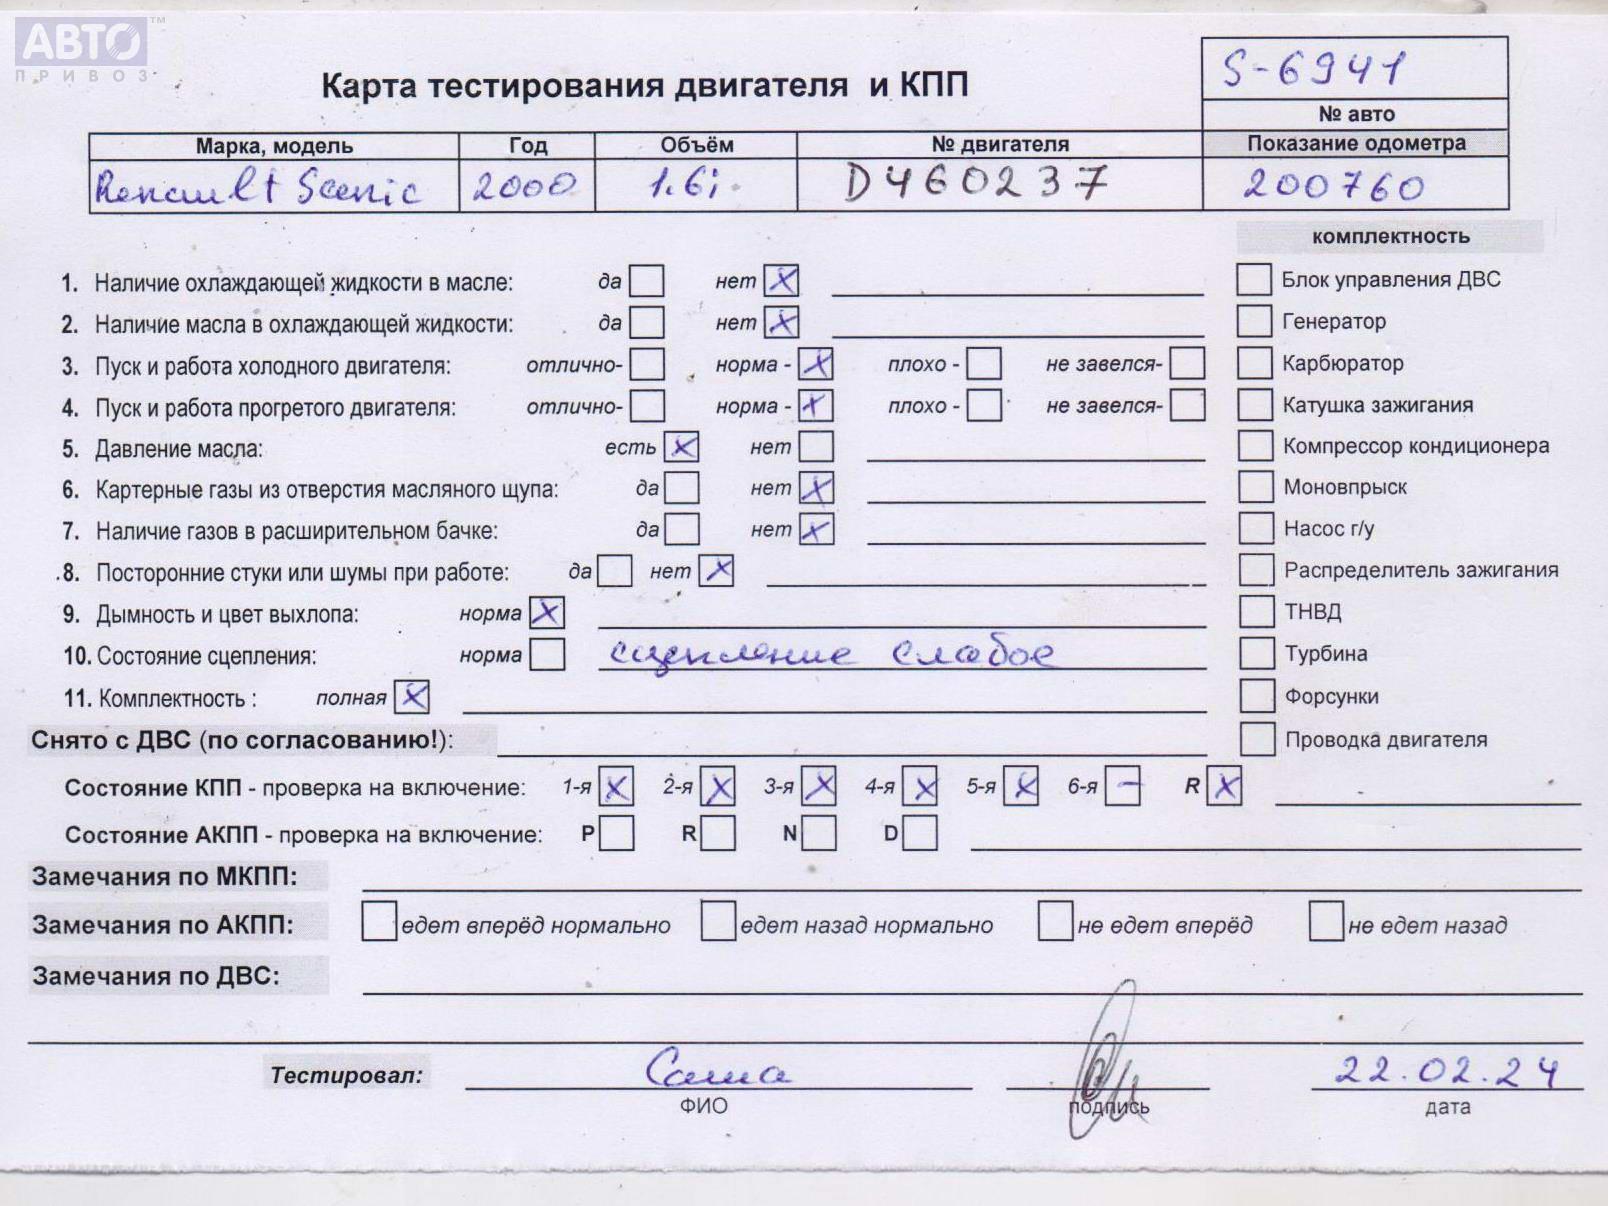 АВТО™
ПРИВОЗ
S-6941
Карта тестирования двигателя и КПП
№ авто
Марка, модель Год Объём № двигателя Показание одометра
Renault Scenic 2000 1.6i D460237 200760
комплектность
1. Наличие охлаждающей жидкости в масле: да нет X Блок управления ДВС
2. Наличие масла в охлаждающей жидкости: да нет X Генератор
3. Пуск и работа холодного двигателя: отлично- норма - X плохо - не завелся- Карбюратор
4. Пуск и работа прогретого двигателя: отлично- норма - X плохо - не завелся- Катушка зажигания
5. Давление масла: есть X нет Компрессор кондиционера
6. Картерные газы из отверстия масляного щупа: да нет X Моновпрыск
7. Наличие газов в расширительном бачке: да нет X Насос г/у
8. Посторонние стуки или шумы при работе: да нет X Распределитель зажигания
9. Дымность и цвет выхлопа: норма X ТНВД
10. Состояние сцепления: норма сцепление слабое Турбина
11. Комплектность : полная X Форсунки
Снято с ДВС (по согласованию!): Проводка двигателя
Состояние КПП - проверка на включение: 1-я X 2-я X 3-я X 4-я X 5-я X 6-я – R X
Состояние АКПП - проверка на включение: P R N D
Замечания по МКПП:
Замечания по АКПП: едет вперёд нормально едет назад нормально не едет вперёд не едет назад
Замечания по ДВС:
Тестировал: Саша 22.02.24
ФИО подпись дата